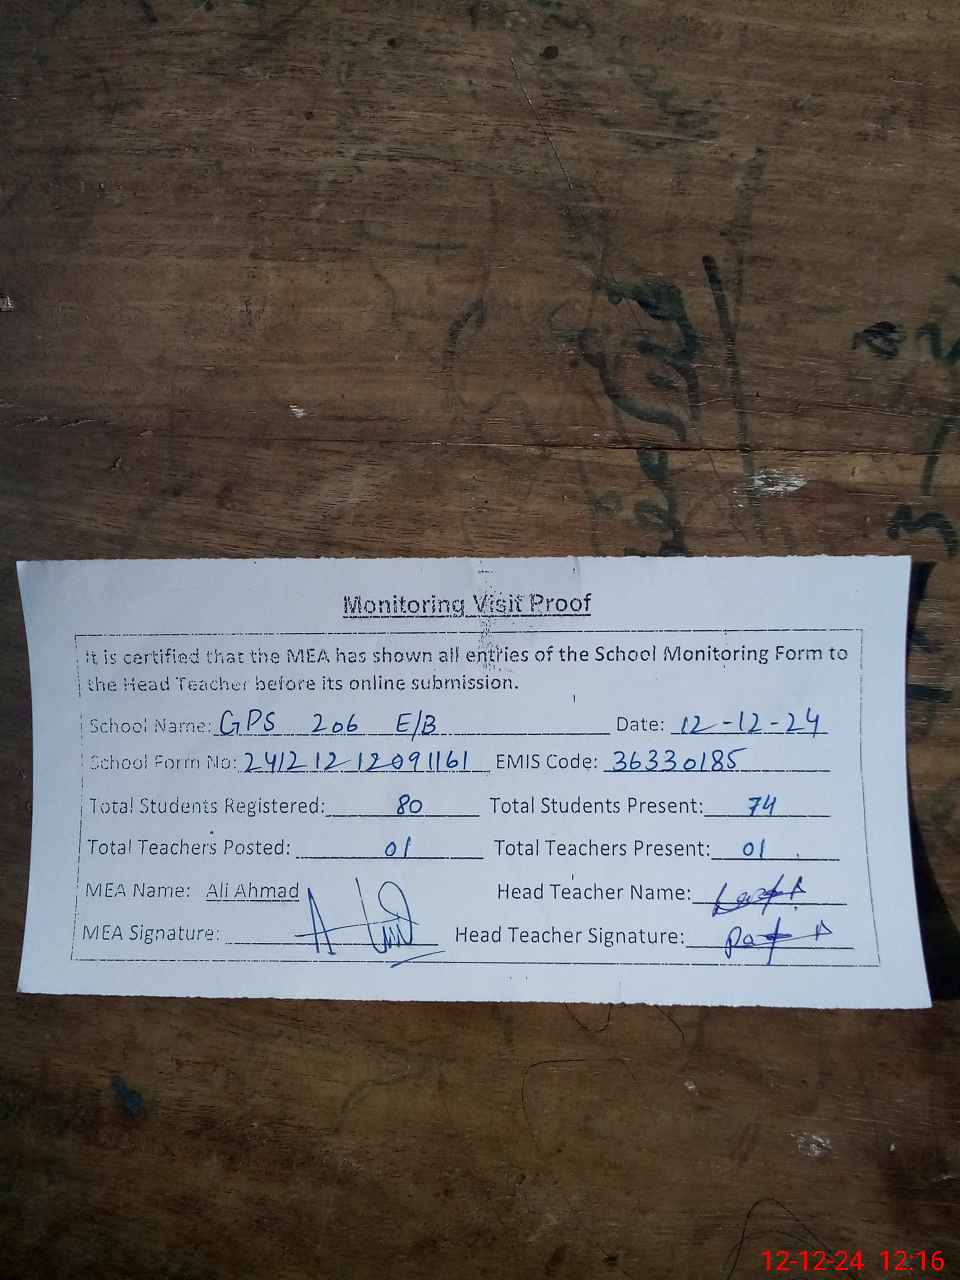 Monitoring Visit Proof
It is certified that the MEA has shown all entries of the School Monitoring Form to
the Head Teacher before its online submission.
School Name: GPS 206 E/B Date: 12-12-24
School Form No: 24121212091161 EMIS Code: 36330185
Total Students Registered: 80 Total Students Present: 74
Total Teachers Posted: 01 Total Teachers Present: 01
MEA Name: Ali Ahmad Head Teacher Name:
MEA Signature: Head Teacher Signature:
12-12-24 12:16